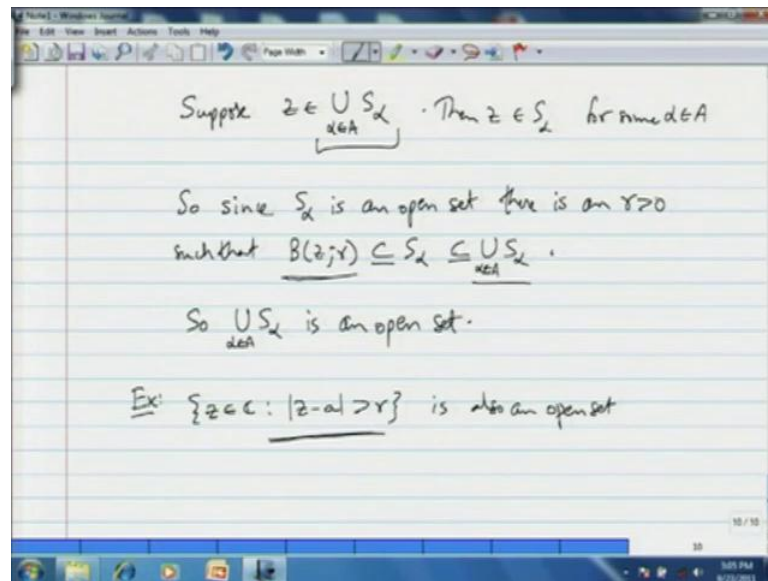 Note1 - Windows Journal
File Edit View Insert Actions Tools Help
Page Width
Suppose z ∈ ∪ S_α . Then z ∈ S_α for some α∈A
α∈A
So since S_α is an open set there is an r>0
such that B(z;r) ⊆ S_α ⊆ ∪ S_α .
α∈A
So ∪ S_α is an open set.
α∈A
Ex: {z∈ℂ : |z-a| > r} is also an open set
10 / 10
10
5:05 PM